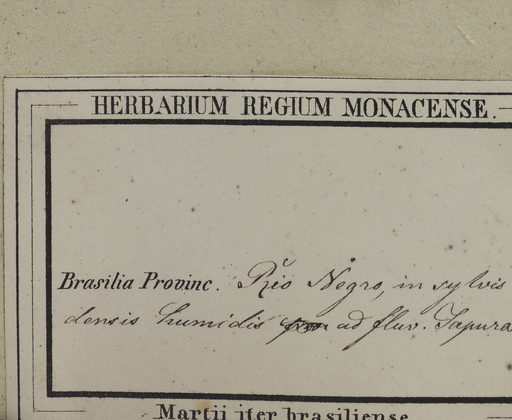 HERBARIUM REGIUM MONACENSE.
Brasilia Provinc. Rio Negro, in sylvis
densis humidis ad fluv. Japura
Martii iter brasiliense